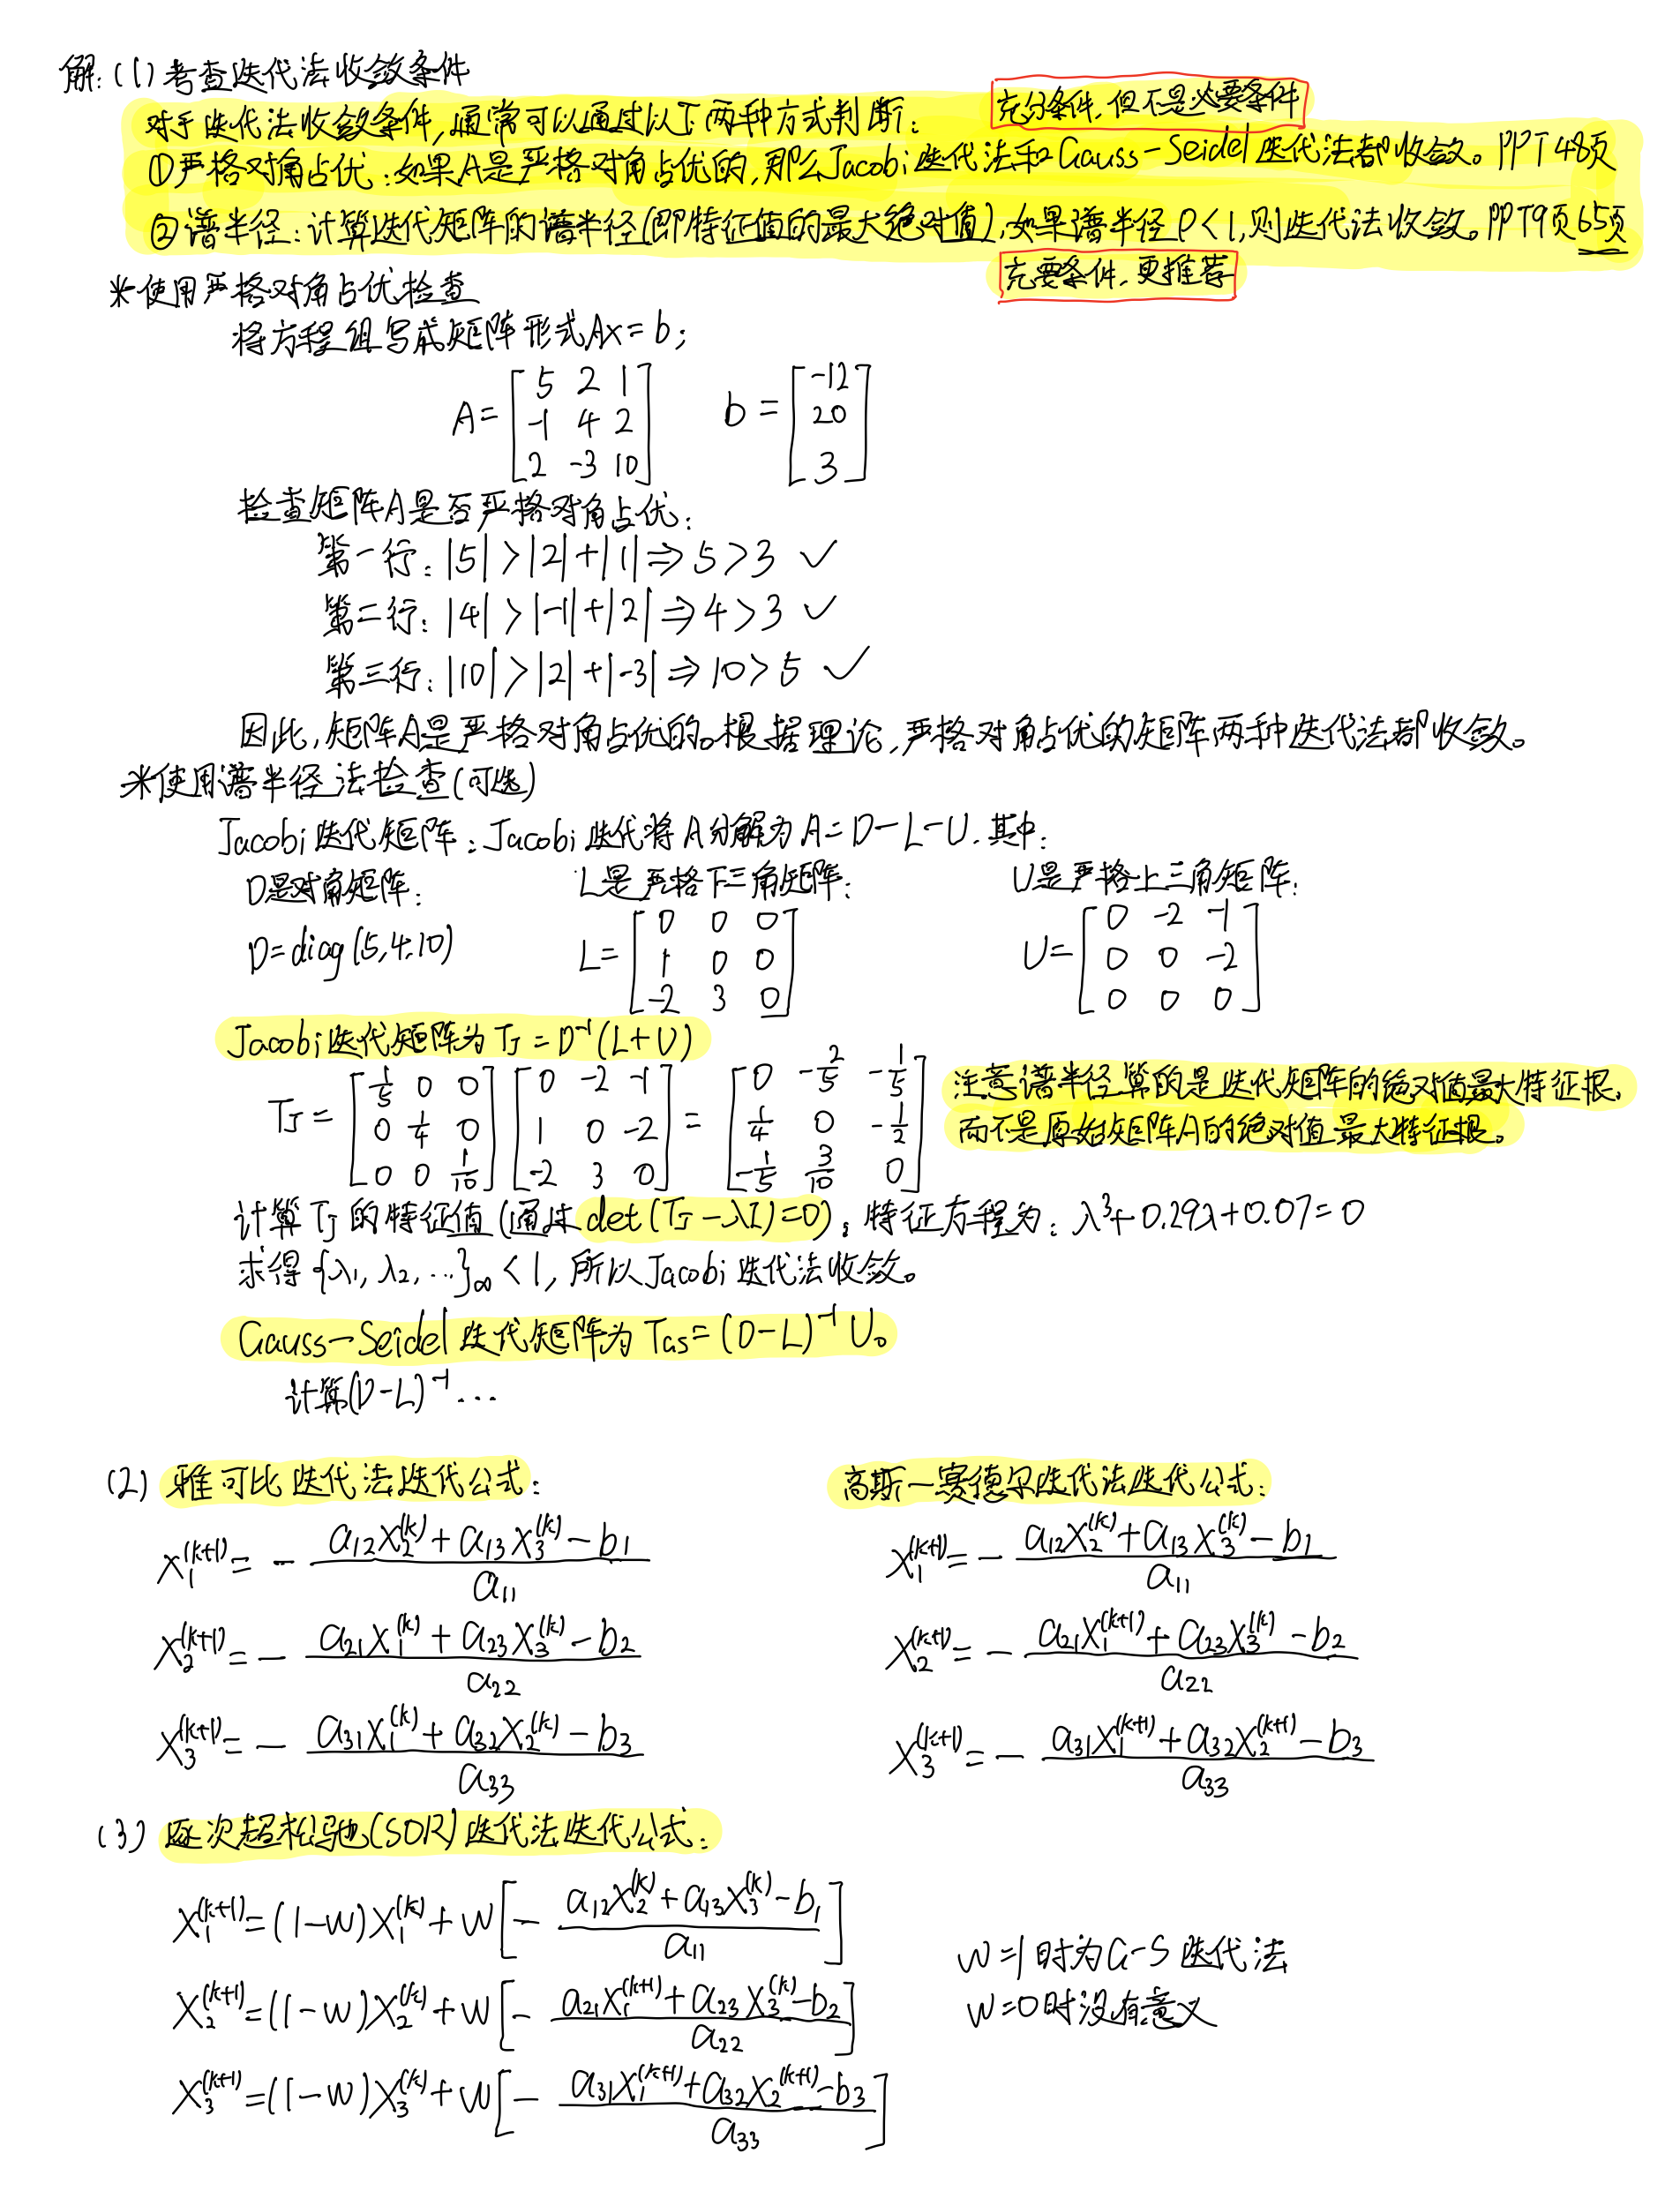 解：(1) 考查迭代法收敛条件
对于迭代法收敛条件，通常可以通过以下两种方式判断：
充分条件，但不是必要条件
①严格对角占优：如果A是严格对角占优的，那么Jacobi迭代法和Gauss-Seidel迭代法都收敛。PPT48页
②谱半径：计算迭代矩阵的谱半径(即特征值的最大绝对值)，如果谱半径ρ<1，则迭代法收敛。PPT9页65页
充要条件，更推荐
*使用严格对角占优检查
将方程组写成矩阵形式Ax=b；
A=[5 2 1; -1 4 2; 2 -3 10] b=[-12; 20; 3]
检查矩阵A是否严格对角占优：
第一行：|5|>|2|+|1|⇒5>3 ✓
第二行：|4|>|-1|+|2|⇒4>3 ✓
第三行：|10|>|2|+|-3|⇒10>5 ✓
因此，矩阵A是严格对角占优的。根据理论，严格对角占优的矩阵两种迭代法都收敛。
*使用谱半径法检查(可选)
Jacobi迭代矩阵：Jacobi迭代将A分解为A=D-L-U，其中：
D是对角矩阵： L是严格下三角矩阵： U是严格上三角矩阵：
D=diag(5,4,10) L=[0 0 0; 1 0 0; -2 3 0] U=[0 -2 -1; 0 0 -2; 0 0 0]
Jacobi迭代矩阵为T_J=D⁻¹(L+U)
T_J=[1/5 0 0; 0 1/4 0; 0 0 1/10][0 -2 -1; 1 0 -2; -2 3 0]=[0 -2/5 -1/5; 1/4 0 -1/2; -1/5 3/10 0]
注意谱半径算的是迭代矩阵的绝对值最大特征根，
而不是原始矩阵A的绝对值最大特征根。
计算T_J的特征值(通过det(T_J-λI)=0)，特征方程为：λ³+0.29λ+0.07=0
求得{λ₁,λ₂,…}∞<1，所以Jacobi迭代法收敛。
Gauss-Seidel迭代矩阵为T_GS=(D-L)⁻¹U。
计算(D-L)⁻¹…
(2) 雅可比迭代法迭代公式：
x₁^(k+1)=-(a₁₂x₂^(k)+a₁₃x₃^(k)-b₁)/a₁₁
x₂^(k+1)=-(a₂₁x₁^(k)+a₂₃x₃^(k)-b₂)/a₂₂
x₃^(k+1)=-(a₃₁x₁^(k)+a₃₂x₂^(k)-b₃)/a₃₃
高斯-赛德尔迭代法迭代公式：
x₁^(k+1)=-(a₁₂x₂^(k)+a₁₃x₃^(k)-b₁)/a₁₁
x₂^(k+1)=-(a₂₁x₁^(k+1)+a₂₃x₃^(k)-b₂)/a₂₂
x₃^(k+1)=-(a₃₁x₁^(k+1)+a₃₂x₂^(k+1)-b₃)/a₃₃
(3) 逐次超松驰(SOR)迭代法迭代公式：
x₁^(k+1)=(1-w)x₁^(k)+w[-(a₁₂x₂^(k)+a₁₃x₃^(k)-b₁)/a₁₁]
x₂^(k+1)=(1-w)x₂^(k)+w[-(a₂₁x₁^(k+1)+a₂₃x₃^(k)-b₂)/a₂₂]
x₃^(k+1)=(1-w)x₃^(k)+w[-(a₃₁x₁^(k+1)+a₃₂x₂^(k+1)-b₃)/a₃₃]
w=1时为G-S迭代法
w=0时没有意义